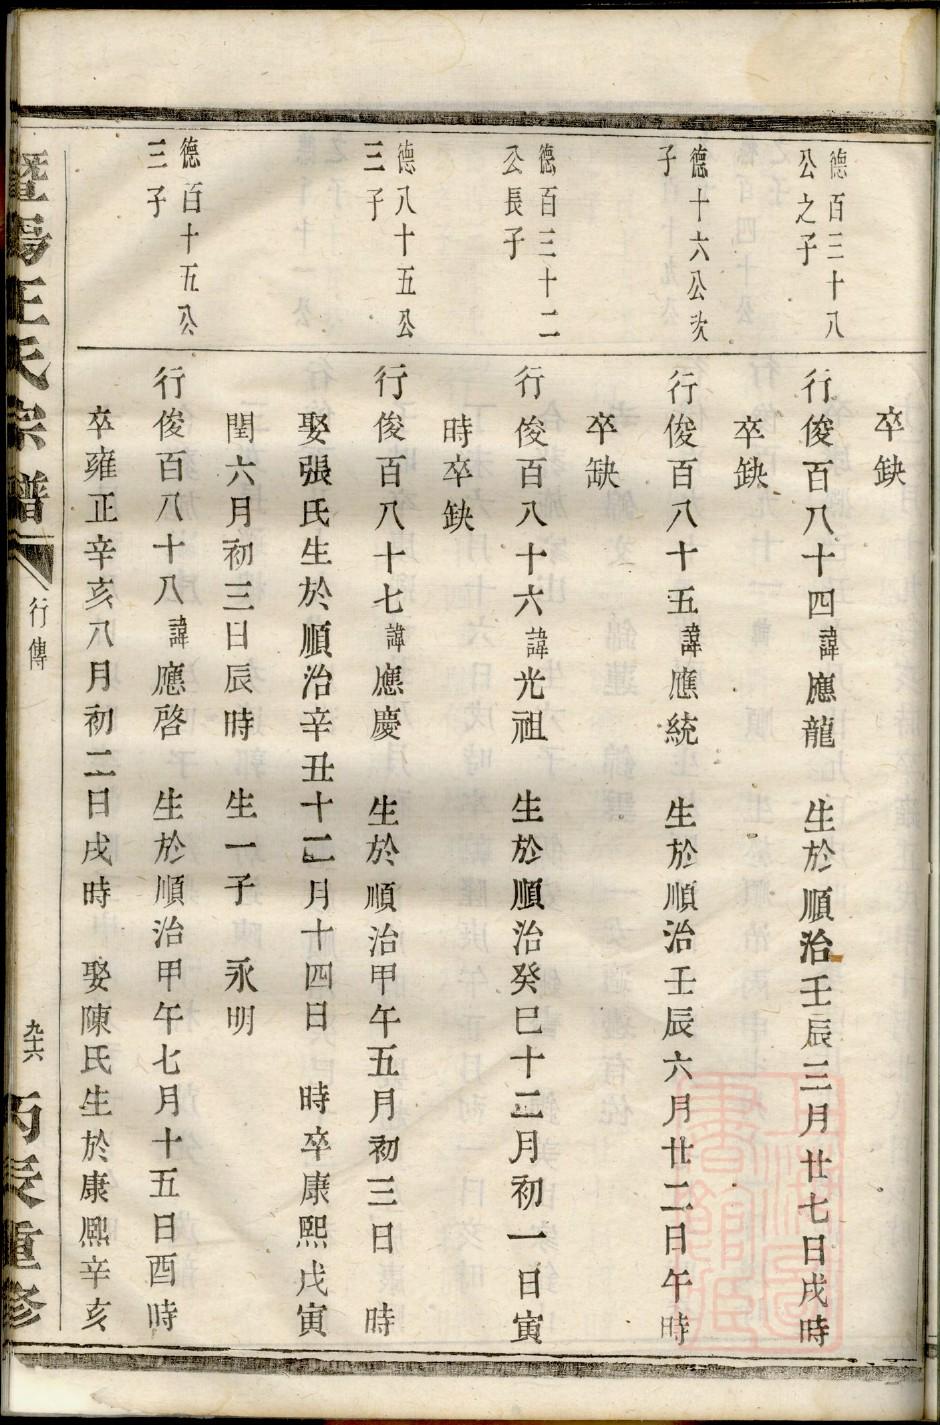 卒缺
德百三十八
公之子
行俊百八十四諱應龍 生於順治壬辰三月廿七日戌時
卒缺
德十六公次
子
行俊百八十五諱應統 生於順治壬辰六月廿二日午時
卒缺
德百三十二
公長子
行俊百八十六諱光祖 生於順治癸巳十二月初一日寅
時卒缺
德八十五公
三子
行俊百八十七諱應慶 生於順治甲午五月初三日 時
娶張氏生於順治辛丑十二月十四日 時卒康熙戊寅
閏六月初三日辰時 生一子 永明
德百十五公
三子
行俊百八十八諱應啓 生於順治甲午七月十五日酉時
卒雍正辛亥八月初二日戌時 娶陳氏生於康熙辛亥
暨陽王氏宗譜 行傳 九十六 丙辰重修